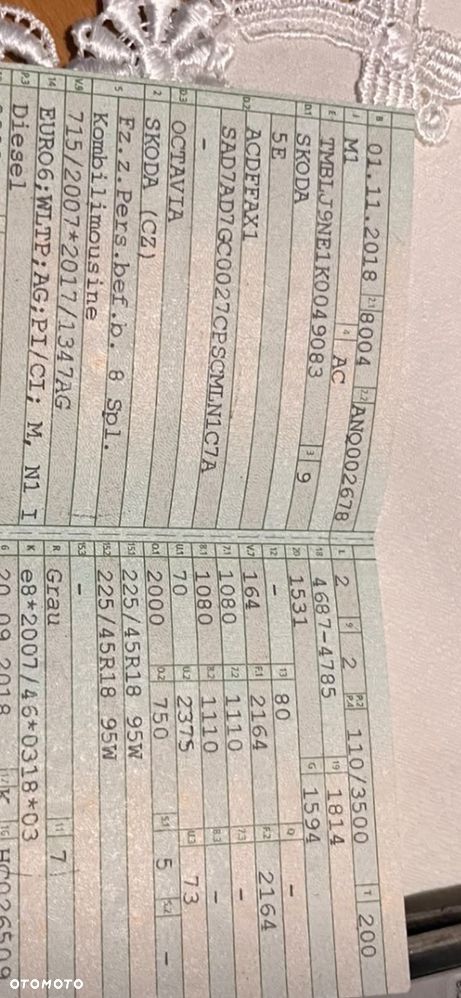 B 01.11.2018 2.1 8004 2.2 ANQ002678
J M1 4 AC
E TMBLJ9NE1K0049083 3 9
D.1 SKODA
5E
D.2 ACDFFAX1
SAD7AD7GC0027CPSCMLN1C7A
-
D.3 OCTAVIA
2 SKODA (CZ)
5 Fz.z.Pers.bef.b. 8 Spl.
Kombilimousine
V.9 715/2007*2017/1347AG
14 EURO6;WLTP;AG;PI/CI; M, N1 I
P.3 Diesel
L 2 9 2 P.2 P.4 110/3500 T 200
18 4687-4785 19 1814
20 1531 G 1594
12 - 13 80 Q -
V.7 164 F.1 2164 F.2 2164
7.1 1080 7.2 1110 7.3 -
8.1 1080 8.2 1110 8.3 -
U.1 70 U.2 2375 U.3 73
O.1 2000 O.2 750 S.1 5 S.2 -
15.1 225/45R18 95W
15.2 225/45R18 95W
15.3 -
R Grau 11 7
K e8*2007/46*0318*03
6 20.09.2018 17 K 16 HC026509
OTOMOTO